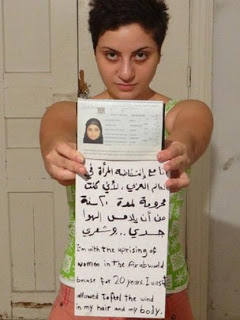 مع إنتفاضة المرأة في
العربي ، لأني كنت
محرومة لمدة ٢٠ سنة
من أن يلامس الهوا
جسدي .. وشعري
I'm with the uprising of
women in the Arab world
becuse for 20 years I wasnt
allowed to feel the wind
in my hair and my body.